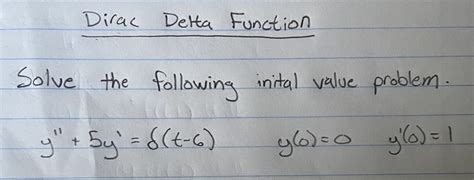 Dirac Delta Function
Solve the following inital value problem.
y'' + 5y' = δ(t-6) y(0)=0 y'(0)=1